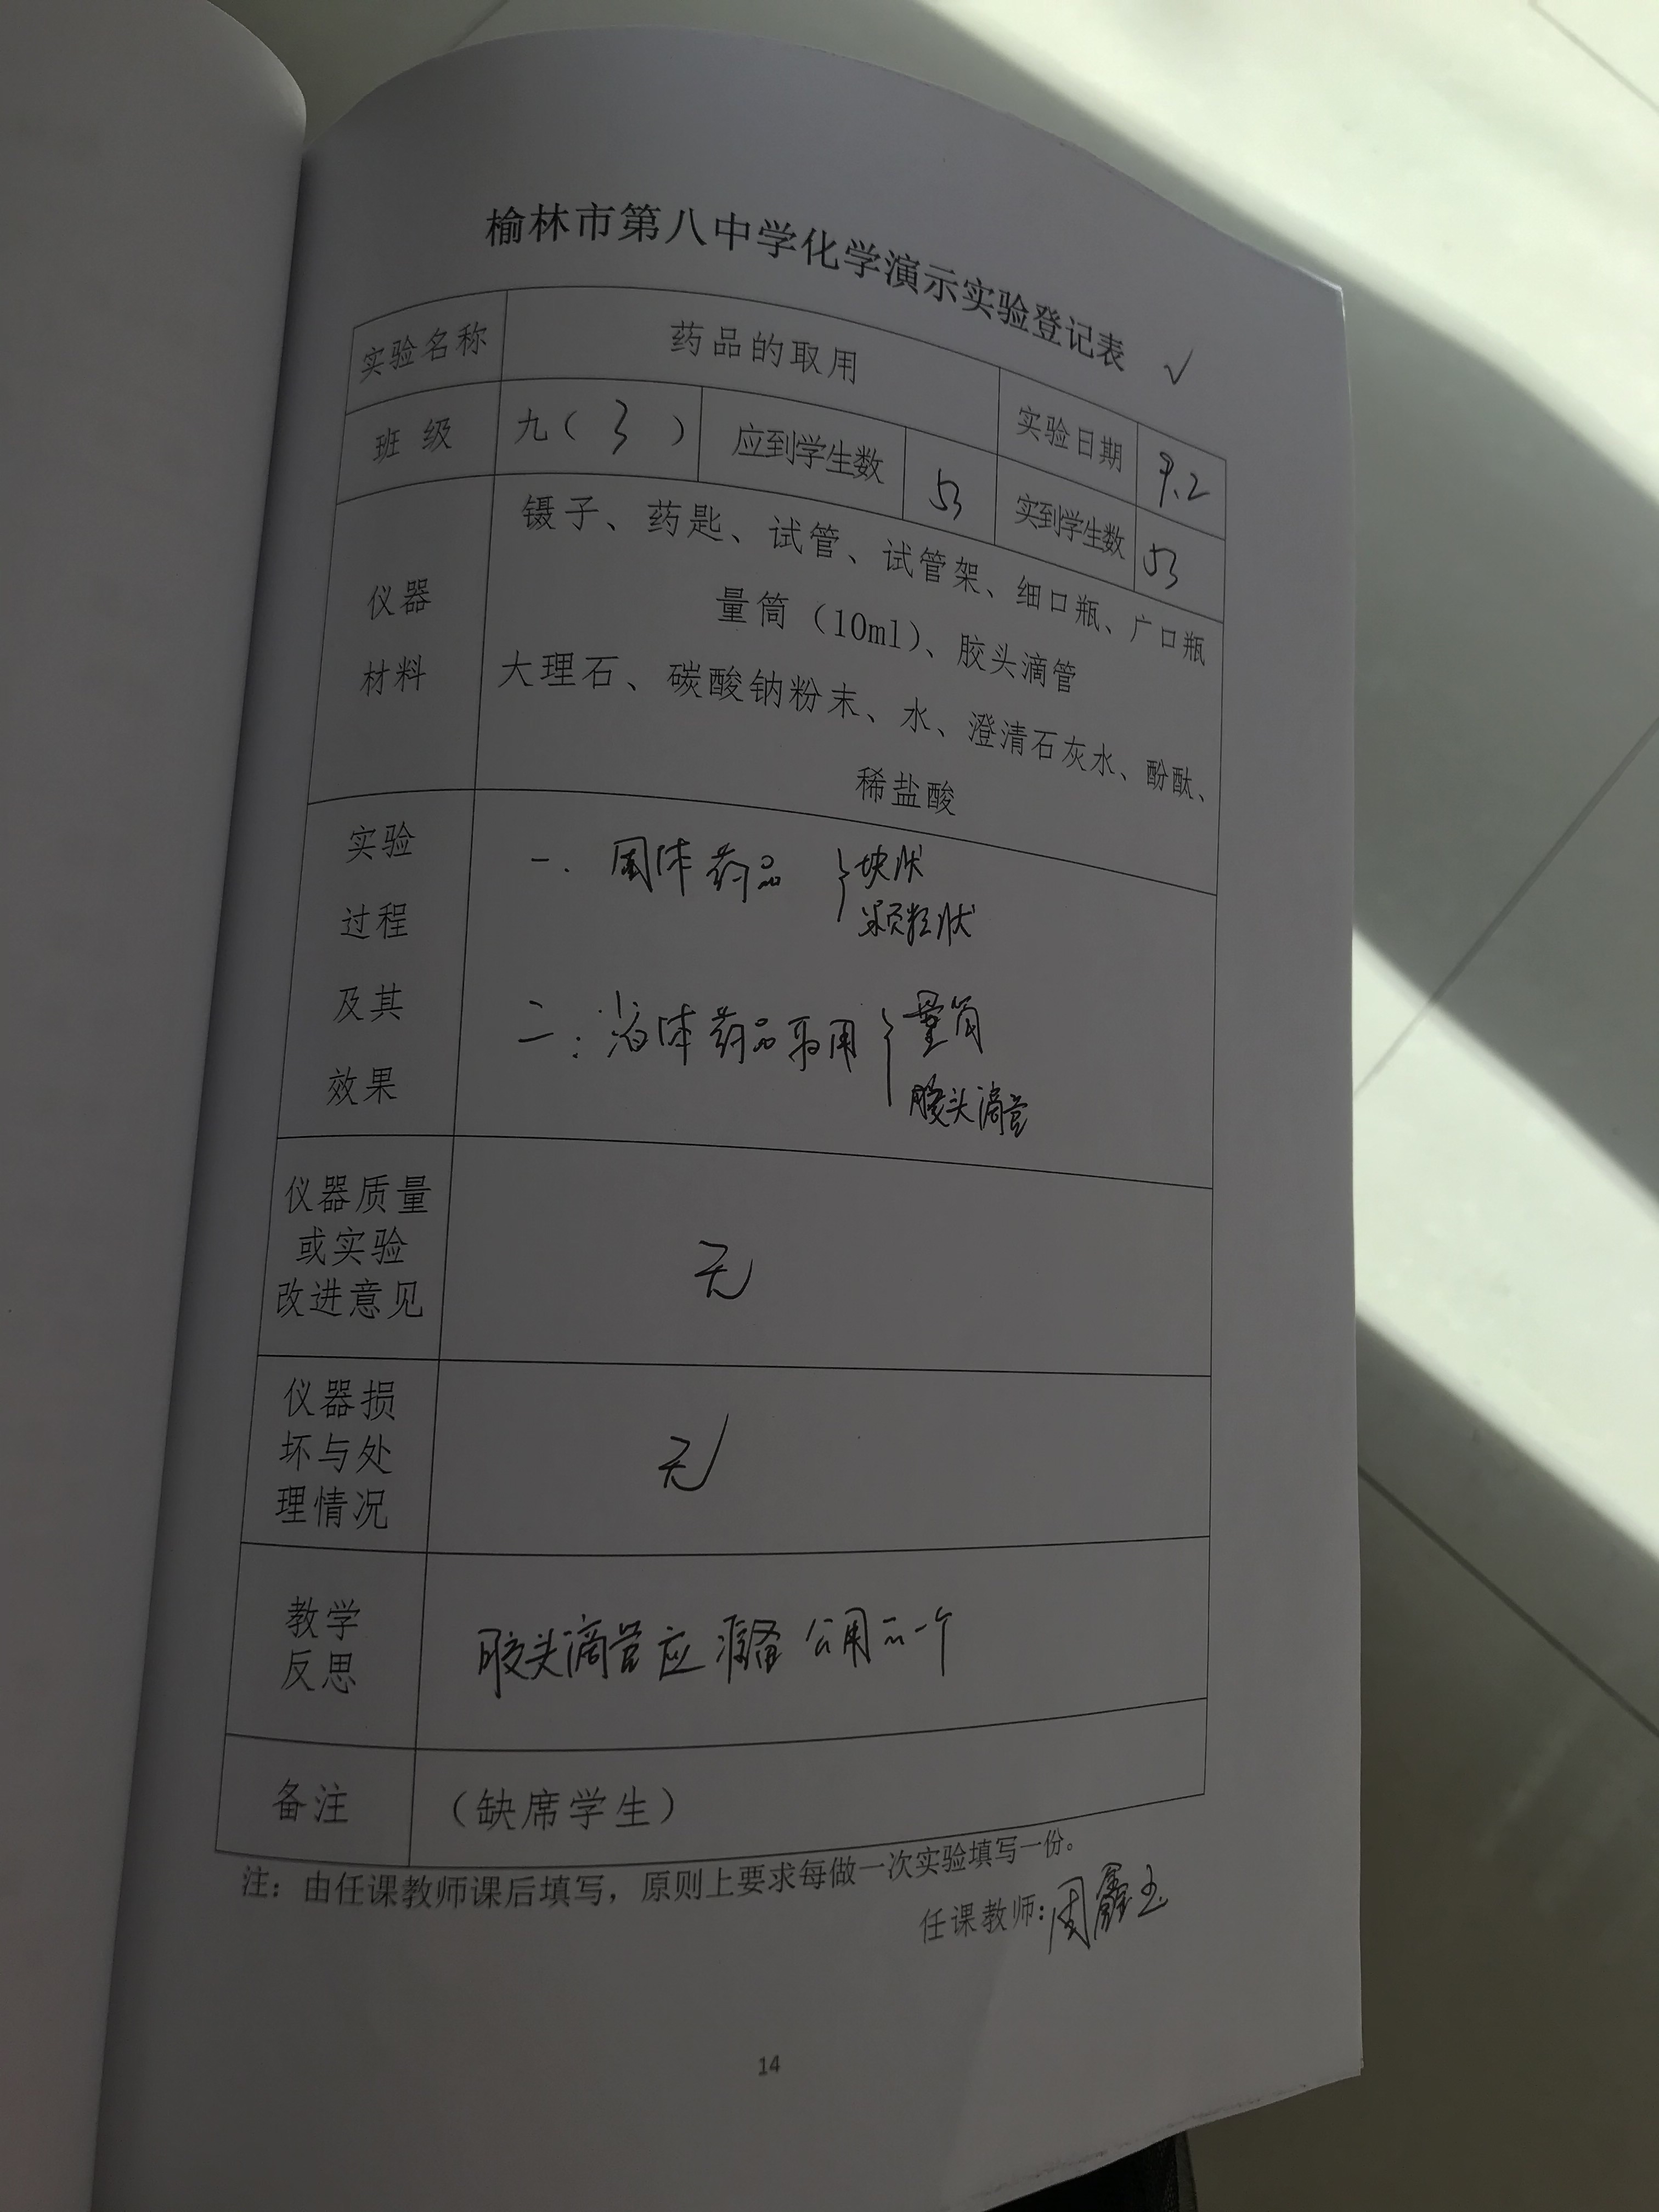 榆林市第八中学化学演示实验登记表 √
实验名称 药品的取用 实验日期 9.2
班 级 九( 3 ) 应到学生数 53 实到学生数 53
仪器
材料
镊子、药匙、试管、试管架、细口瓶、广口瓶
量筒(10ml)、胶头滴管
大理石、碳酸钠粉末、水、澄清石灰水、酚酞、
稀盐酸
实验
过程
及其
效果
一. 固体药品 { 块状
颗粒状
二: 液体药品取用 { 量筒
胶头滴管
仪器质量
或实验
改进意见
无
仪器损
坏与处
理情况
无
教学
反思
胶头滴管应 公用一个
备注 (缺席学生)
注:由任课教师课后填写,原则上要求每做一次实验填写一份。
任课教师:周鑫玉
14